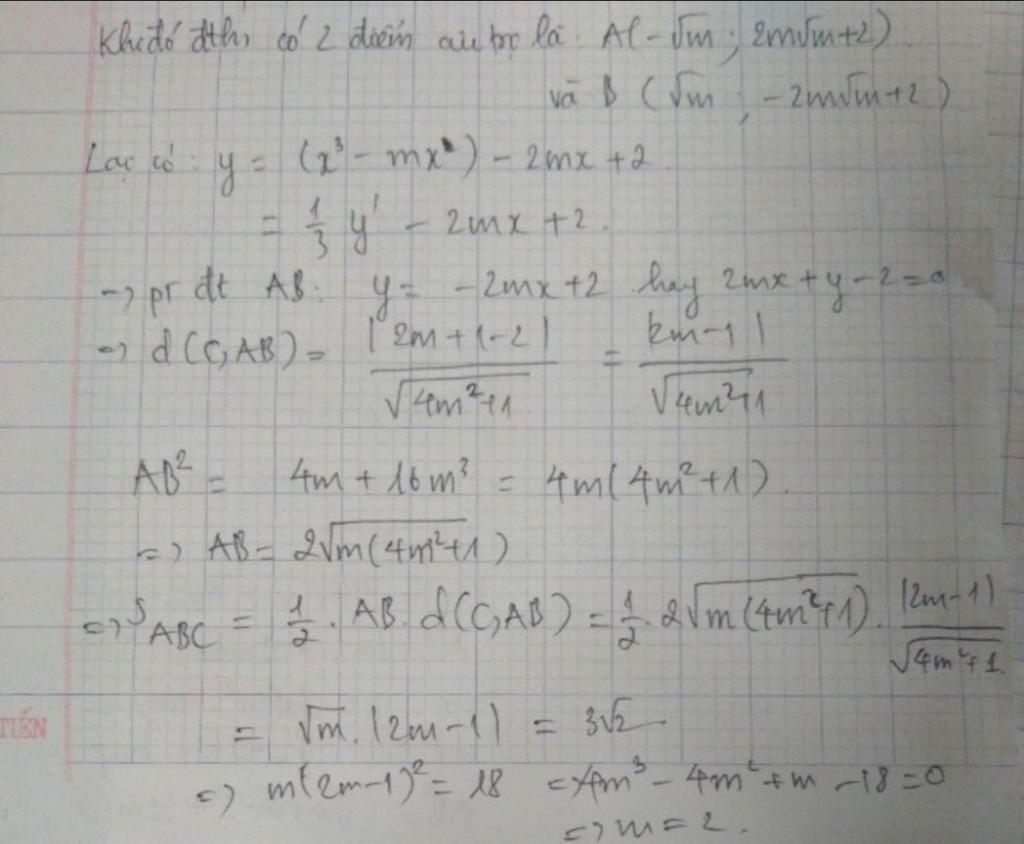 Khi đó đths có 2 điểm cực trị là: A(-√m ; 2m√m+2)
và B (√m ; -2m√m+2)
Lại có: y = (x³ - mx) - 2mx + 2
= 1/3 y' - 2mx + 2.
→ pt đt AB: y = -2mx+2 hay 2mx + y - 2 = 0
→ d(C,AB) = |2m+1-2| / √(4m²+1) = |2m-1| / √(4m²+1)
AB² = 4m + 16m³ = 4m(4m²+1).
=> AB = 2√(m(4m²+1))
=> S_ABC = 1/2 . AB . d(C,AB) = 1/2 . 2√(m(4m²+1)) . |2m-1| / √(4m²+1)
TIẾN
= √m . |2m-1| = 3√2
=> m(2m-1)² = 18 <=> 4m³ - 4m² + m - 18 = 0
=> m = 2.